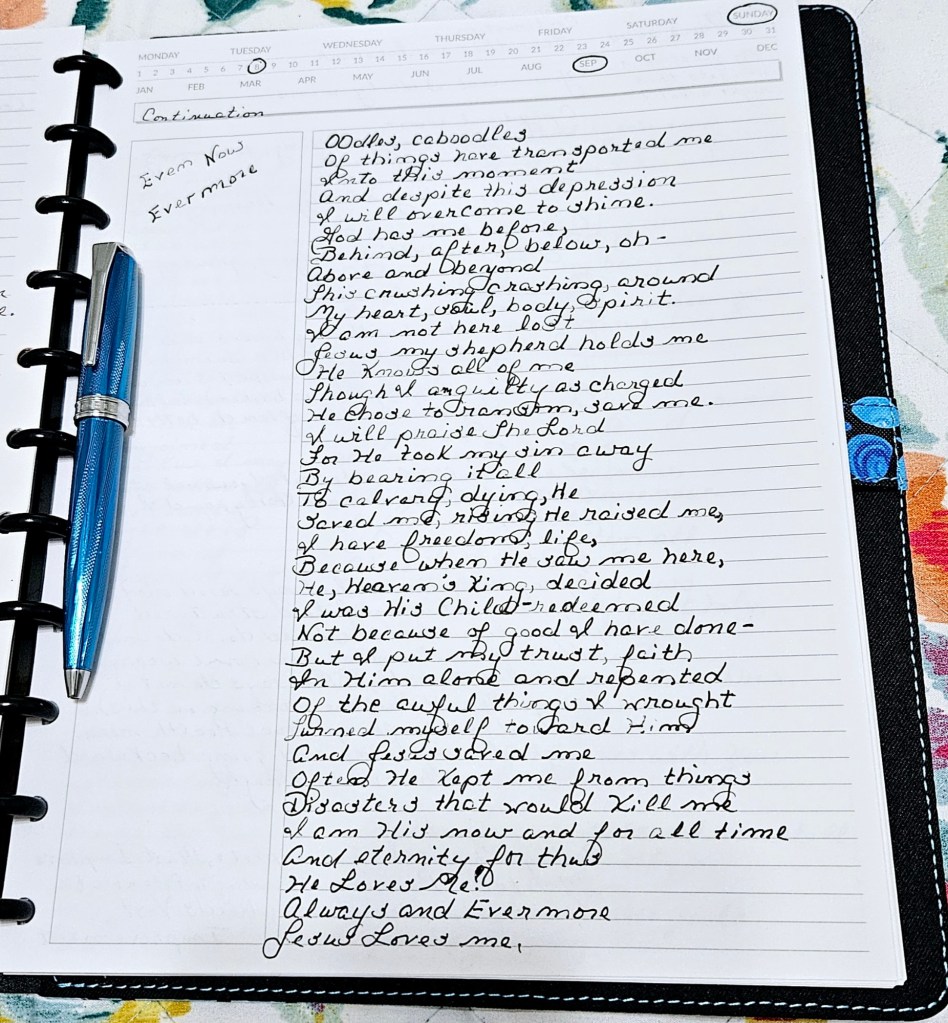 MONDAY TUESDAY WEDNESDAY THURSDAY FRIDAY SATURDAY SUNDAY
1 2 3 4 5 6 7 8 9 10 11 12 13 14 15 16 17 18 19 20 21 22 23 24 25 26 27 28 29 30 31
JAN FEB MAR APR MAY JUN JUL AUG SEP OCT NOV DEC
Continuation
Even Now
Evermore
OOdles, caboodles
Of things have transported me
Into this moment
And despite this depression
I will overcome to shine.
God has me before,
Behind, after, below, oh-
Above and beyond
This crushing crashing, around
My heart, soul, body, spirit.
I am not here lost
Jesus my shepherd holds me
He Knows all of me
Though I am guilty as charged
He Chose to ransom, save me.
I will praise The Lord
For He took my sin away
By bearing it all
To calvary, dying, He
saved me, rising He raised me,
I have freedom, life,
Because when He saw me here,
He, Heaven's King, decided
I was His Child-redeemed
Not because of good I have done-
But I put my trust, faith
In Him alone and repented
Of the awful things I wrought
Turned myself toward Him
And Jesus saved me
Often He Kept me from things
Disasters that would Kill me
I am His now and for all time
And eternity for thus
He Loves Me!
Always and Evermore
Jesus Loves me.